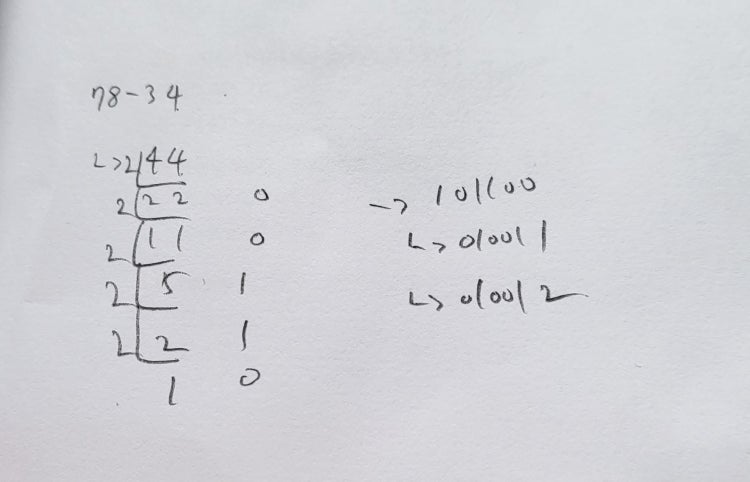 78-34
↳2 44
2 22 0
2 11 0
2 5 1
2 2 1
1 0
→ 101100
↳ 010011
↳ 010012